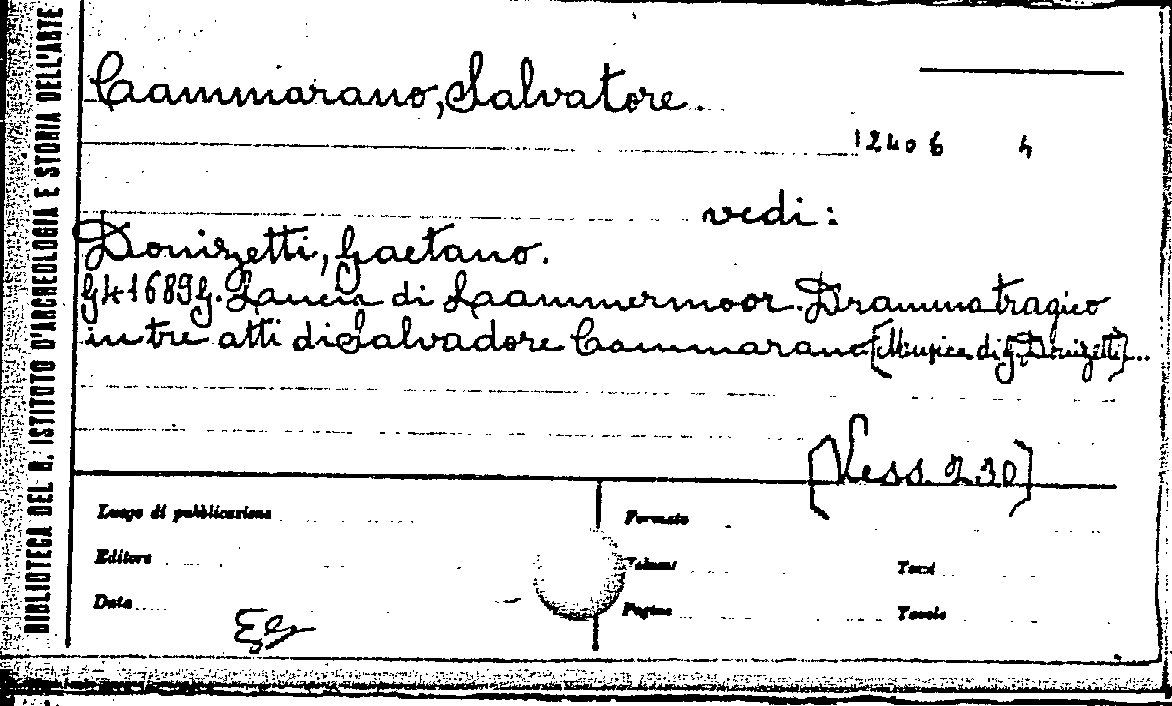 BIBLIOTECA DEL R. ISTITUTO D'ARCHEOLOGIA E STORIA DELL'ARTE
Cammarano, Salvatore.
12406 4
vedi:
Donizetti, Gaetano.
G41689G. Lucia di Laammermoor. Dramma tragico
in tre atti di Salvadore Cammarano [Musica di G. Donizetti]...
[Vess. 230]
Luogo di pubblicazione
Formato
Editore
Volumi
Tomi
Data
Pagine
Tavole